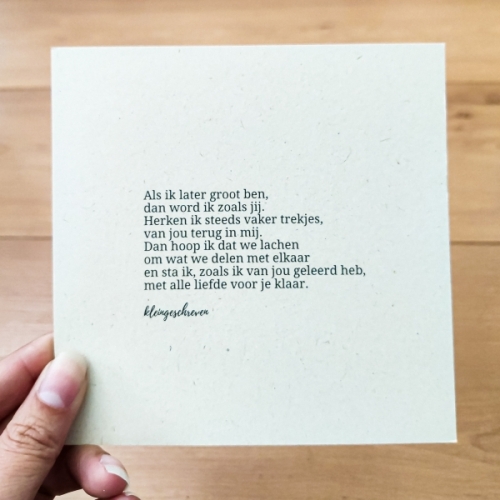 Als ik later groot ben,
dan word ik zoals jij.
Herken ik steeds vaker trekjes,
van jou terug in mij.
Dan hoop ik dat we lachen
om wat we delen met elkaar
en sta ik, zoals ik van jou geleerd heb,
met alle liefde voor je klaar.
kleingeschreven